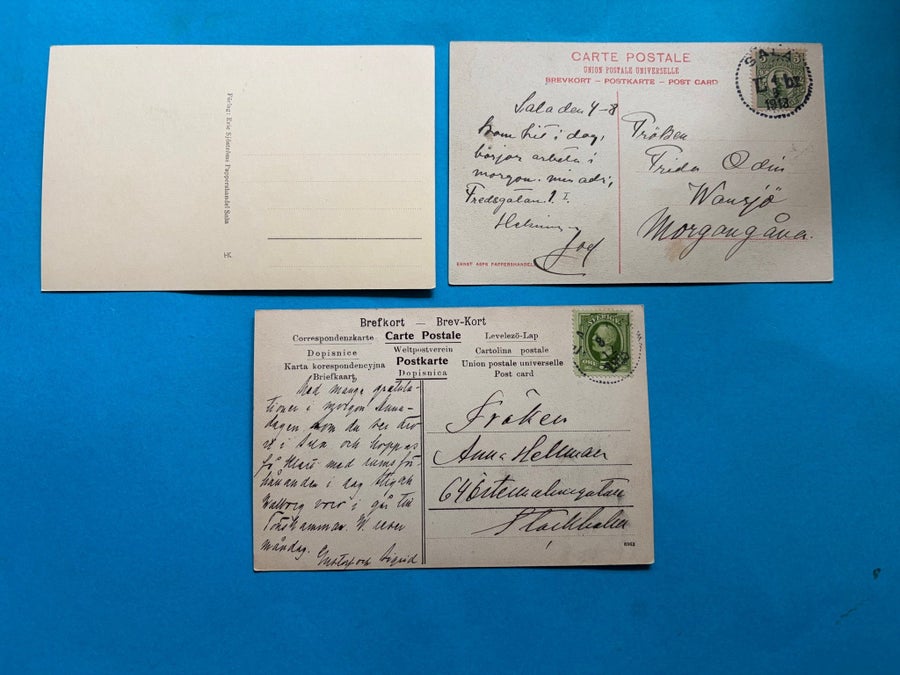 Förlag: Eric Sjöströms Pappershandel Sala
CARTE POSTALE
UNION POSTALE UNIVERSELLE
BREVKORT – POSTKARTE – POST CARD
SALA
1913
Sala den 4-8
kom hit i dag,
börjar arbeta i
morgon. min adr,
Fredsgatan 1. I.
Fröken
Frida Odin
Wansjö
Morgongåva.
ERNST ASPS PAPPERSHANDEL
Brefkort — Brev-Kort
Correspondenzkarte Carte Postale Levelező-Lap
Dopisnice Weltpostverein Cartolina postale
Karta korespondencyjna Postkarte Union postale universelle
Briefkaart Dopisnica Post card
SVERIGE
Med många gratula-
tioner i morgon Anna-
dagen, som du ber
i Sala och hoppas
få med
i dag
Walborg i går till
W reser
måndag.
Gustaf och Sigrid
Fröken
Anna Hellman
64 Östermalmsgatan
Stockholm